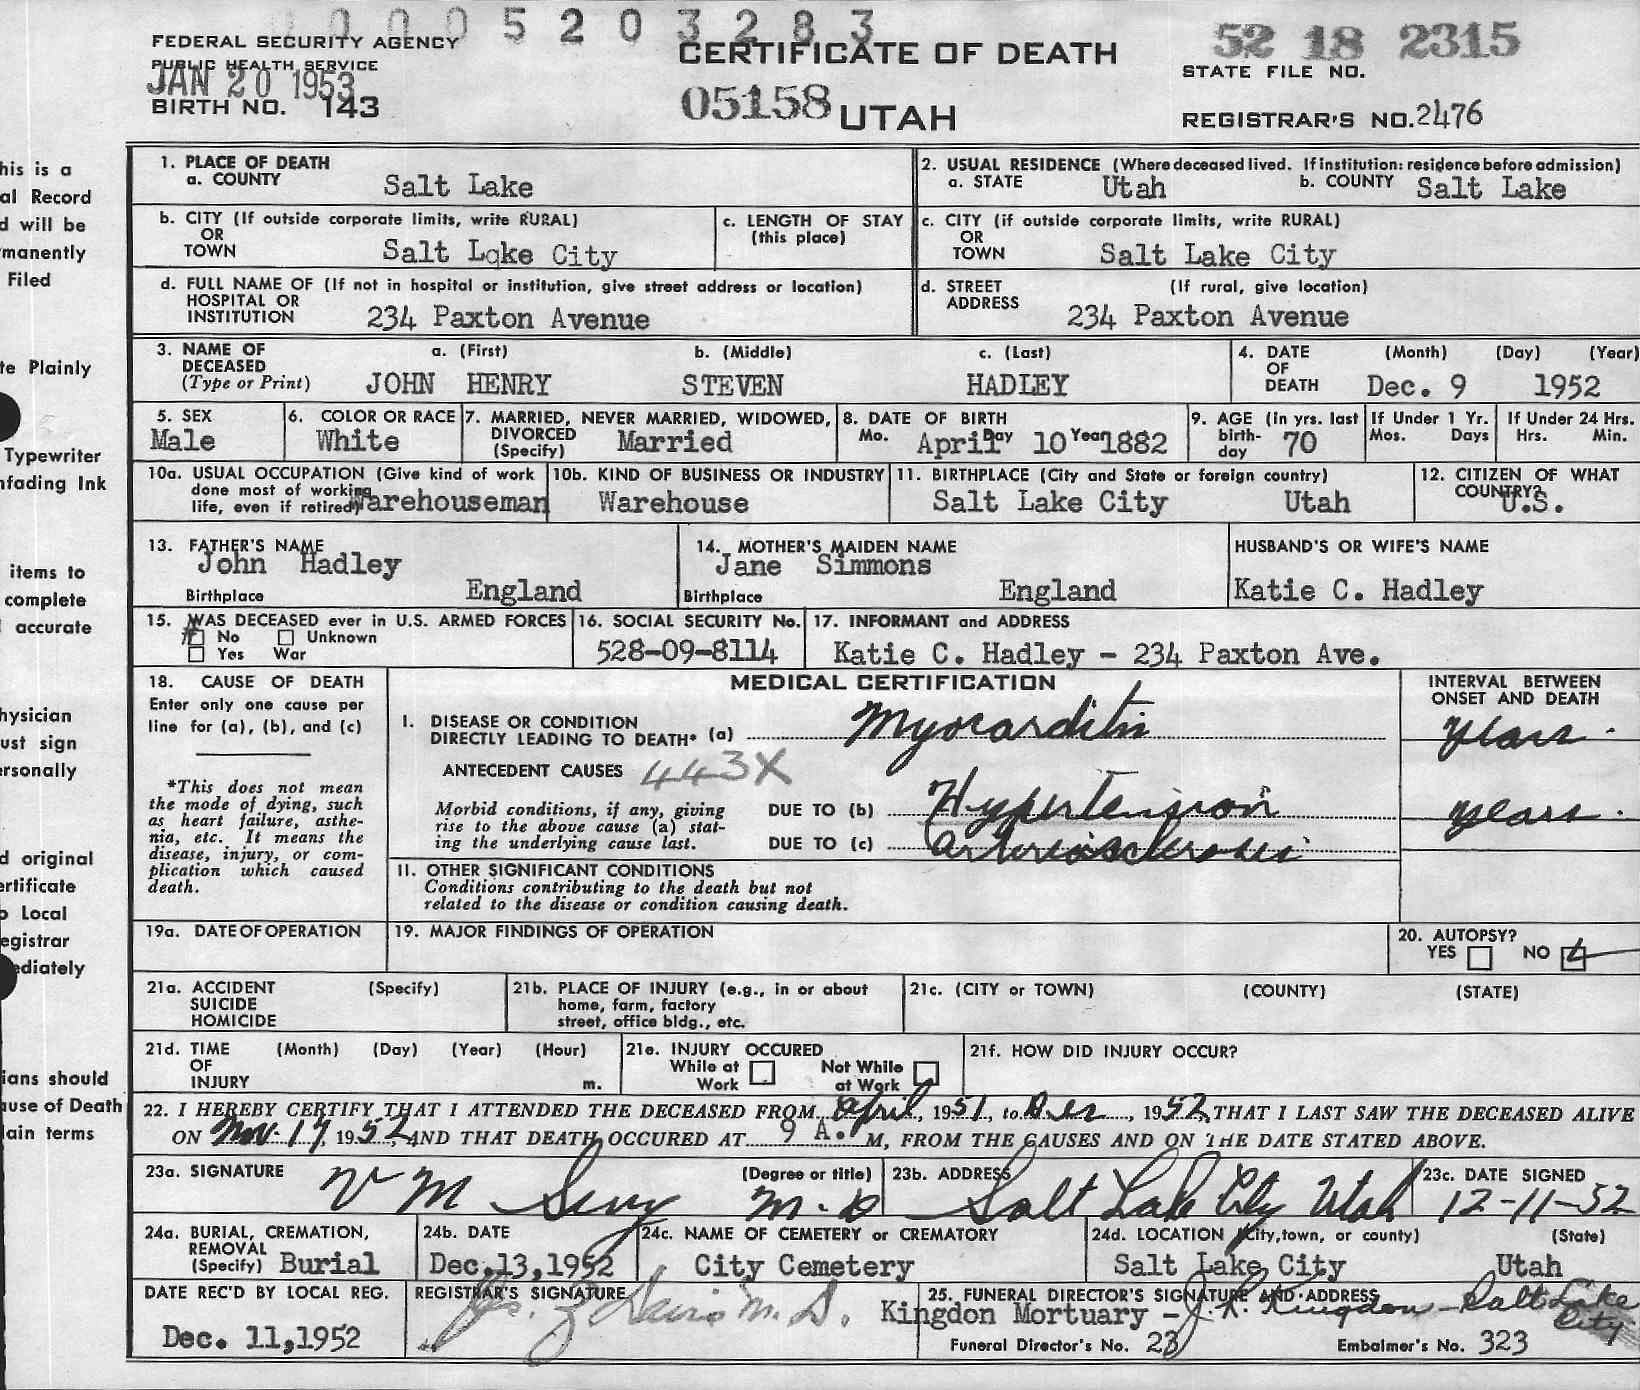 0005203283
FEDERAL SECURITY AGENCY
PUBLIC HEALTH SERVICE
JAN 20 1953
BIRTH NO. 143
CERTIFICATE OF DEATH
05158 UTAH
52 18 2315
STATE FILE NO.
REGISTRAR'S NO. 2476
his is a
al Record
d will be
manently
Filed
te Plainly
Typewriter
nfading Ink
items to
complete
accurate
hysician
ust sign
ersonally
d original
ertificate
o Local
egistrar
ediately
ians should
ause of Death
lain terms
1. PLACE OF DEATH
a. COUNTY Salt Lake
2. USUAL RESIDENCE (Where deceased lived. If institution: residence before admission)
a. STATE Utah b. COUNTY Salt Lake
b. CITY (If outside corporate limits, write RURAL)
OR
TOWN Salt Lake City
c. LENGTH OF STAY
(this place)
c. CITY (if outside corporate limits, write RURAL)
OR
TOWN Salt Lake City
d. FULL NAME OF (If not in hospital or institution, give street address or location)
HOSPITAL OR
INSTITUTION 234 Paxton Avenue
d. STREET (If rural, give location)
ADDRESS 234 Paxton Avenue
3. NAME OF a. (First) b. (Middle) c. (Last)
DECEASED
(Type or Print) JOHN HENRY STEVEN HADLEY
4. DATE (Month) (Day) (Year)
OF
DEATH Dec. 9 1952
5. SEX
Male
6. COLOR OR RACE
White
7. MARRIED, NEVER MARRIED, WIDOWED,
DIVORCED
(Specify) Married
8. DATE OF BIRTH
Mo. April Day 10 Year 1882
9. AGE (in yrs. last
birth-
day 70
If Under 1 Yr.
Mos. Days
If Under 24 Hrs.
Hrs. Min.
10a. USUAL OCCUPATION (Give kind of work
done most of working
life, even if retired) Warehouseman
10b. KIND OF BUSINESS OR INDUSTRY
Warehouse
11. BIRTHPLACE (City and State or foreign country)
Salt Lake City Utah
12. CITIZEN OF WHAT
COUNTRY?
U.S.
13. FATHER'S NAME
John Hadley
Birthplace England
14. MOTHER'S MAIDEN NAME
Jane Simmons
Birthplace England
HUSBAND'S OR WIFE'S NAME
Katie C. Hadley
15. WAS DECEASED ever in U.S. ARMED FORCES
No Unknown
Yes War
16. SOCIAL SECURITY No.
528-09-8114
17. INFORMANT and ADDRESS
Katie C. Hadley - 234 Paxton Ave.
18. CAUSE OF DEATH
Enter only one cause per
line for (a), (b), and (c)
*This does not mean
the mode of dying, such
as heart failure, asthe-
nia, etc. It means the
disease, injury, or com-
plication which caused
death.
MEDICAL CERTIFICATION
I. DISEASE OR CONDITION
DIRECTLY LEADING TO DEATH* (a) Myocarditis
ANTECEDENT CAUSES 443X
Morbid conditions, if any, giving
rise to the above cause (a) stat-
ing the underlying cause last.
DUE TO (b) Hypertension
DUE TO (c) Arteriosclerosis
11. OTHER SIGNIFICANT CONDITIONS
Conditions contributing to the death but not
related to the disease or condition causing death.
INTERVAL BETWEEN
ONSET AND DEATH
years.
years.
19a. DATE OF OPERATION
19. MAJOR FINDINGS OF OPERATION
20. AUTOPSY?
YES NO
21a. ACCIDENT (Specify)
SUICIDE
HOMICIDE
21b. PLACE OF INJURY (e.g., in or about
home, farm, factory
street, office bldg., etc.
21c. (CITY or TOWN) (COUNTY) (STATE)
21d. TIME (Month) (Day) (Year) (Hour)
OF
INJURY m.
21e. INJURY OCCURED
While at Not While
Work at Work
21f. HOW DID INJURY OCCUR?
22. I HEREBY CERTIFY THAT I ATTENDED THE DECEASED FROM April, 1951, to Dec, 1952, THAT I LAST SAW THE DECEASED ALIVE
ON Nov. 17, 1952 AND THAT DEATH OCCURED AT 9 A. M, FROM THE CAUSES AND ON THE DATE STATED ABOVE.
23a. SIGNATURE (Degree or title)
V M Sevy M.D
23b. ADDRESS
Salt Lake City Utah
23c. DATE SIGNED
12-11-52
24a. BURIAL, CREMATION,
REMOVAL
(Specify) Burial
24b. DATE
Dec.13,1952
24c. NAME OF CEMETERY OR CREMATORY
City Cemetery
24d. LOCATION (City, town, or county) (State)
Salt Lake City Utah
DATE REC'D BY LOCAL REG.
Dec. 11,1952
REGISTRAR'S SIGNATURE
M.D.
25. FUNERAL DIRECTOR'S SIGNATURE AND ADDRESS
Kingdon Mortuary - J. R. Kingdon - Salt Lake
City
Funeral Director's No. 23 Embalmer's No. 323